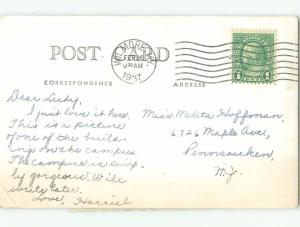 POST CARD
WILMORE, KY.
FEB
9 30 AM
1937
1 CENT 1
CORRESPONDENCE
ADDRESS
Dear Lucky,
I just love it here.
This is a picture
of one of the build-
ings on the campus.
The campus is simp-
ly gorgeous. Will
write later.
Love, Harriet
Miss Melita Hoffman
6726 Maple Ave,
Pennsauken,
N.J.